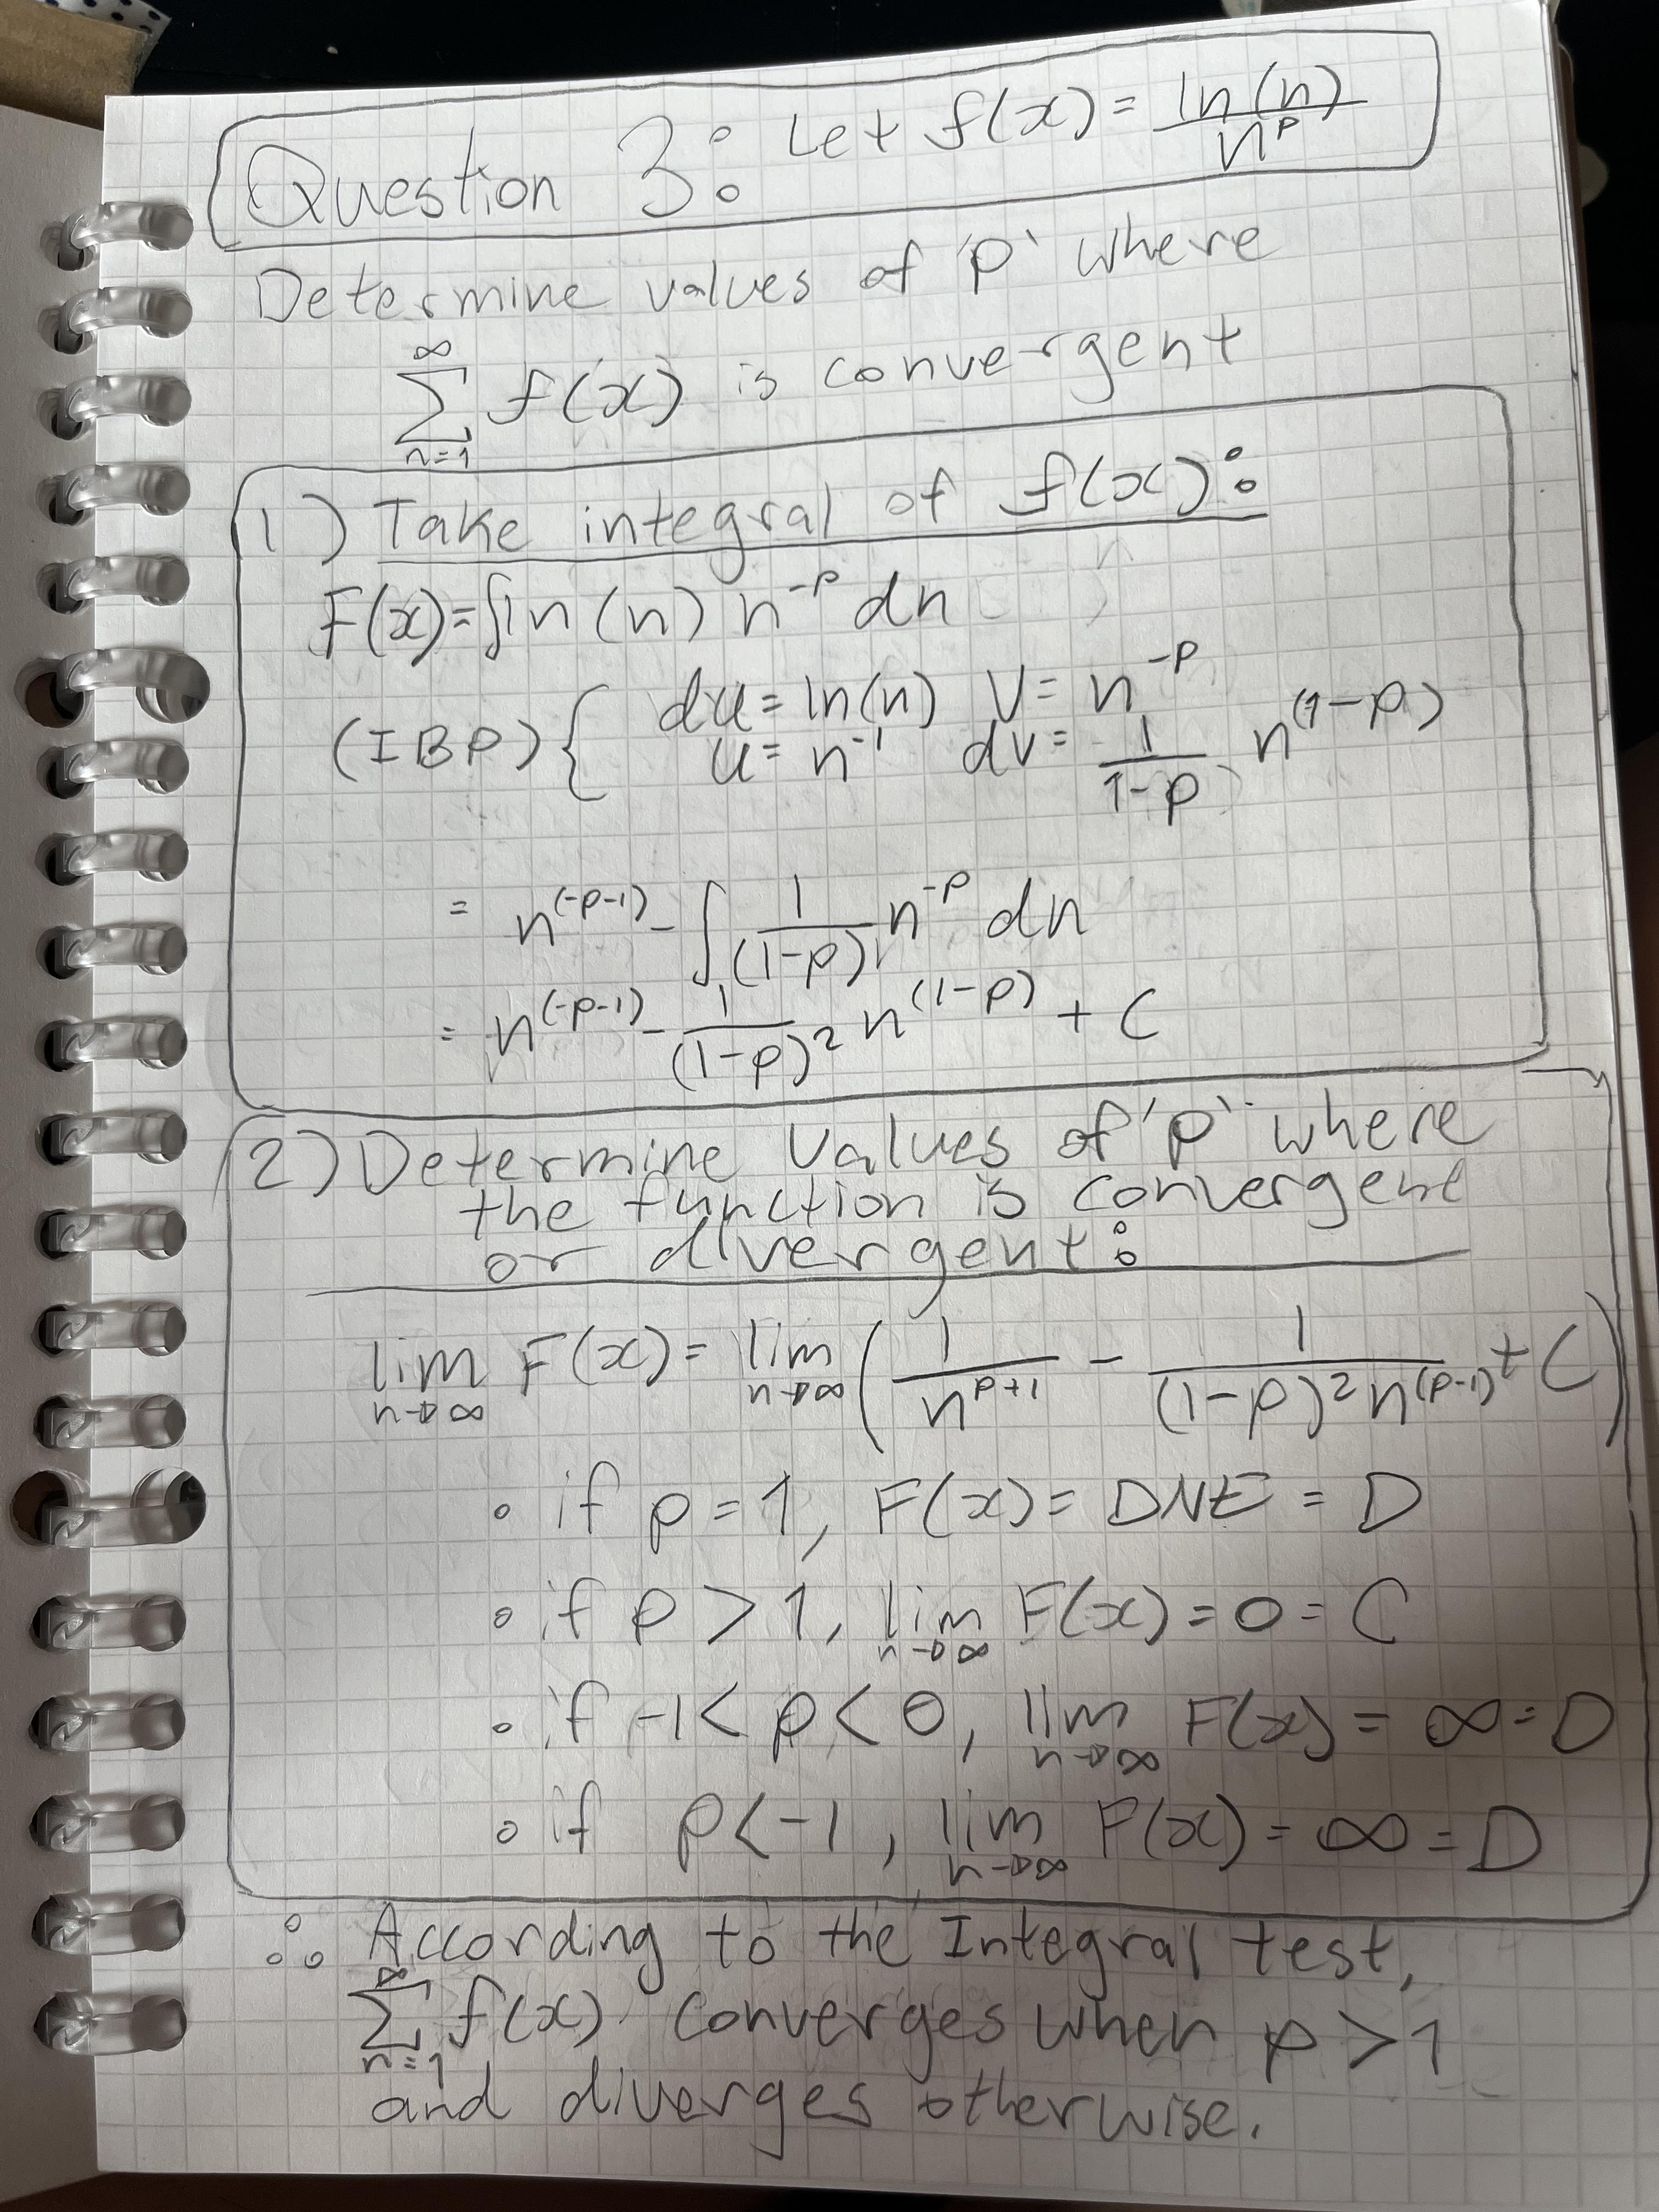 Question 3: Let f(x) = ln(n)/n^p
Determine values of 'p' where
∑_{n=1}^{∞} f(x) is convergent
1) Take integral of f(x):
F(x) = ∫ln(n) n^{-p} dn
(IBP) { du = ln(n) V = n^{-p}
u = n^{-1} dv = 1/(1-p) n^{(1-p)}
= n^{(-p-1)} - ∫ 1/(1-p) n^{-p} dn
= n^{(-p-1)} - 1/(1-p)^2 n^{(1-p)} + C
2) Determine values of 'p' where
the function is convergent
or divergent:
lim_{n→∞} F(x) = lim_{n→∞} (1/n^{p+1} - 1/((1-p)^2 n^{(p-1)}) + C)
∘ if p = 1, F(x) = DNE = D
∘ if p > 1, lim_{n→∞} F(x) = 0 = C
∘ if -1 < p < 0, lim_{n→∞} F(x) = ∞ = D
∘ if p < -1, lim_{n→∞} F(x) = ∞ = D
∴ According to the Integral test,
∑_{n=1}^{∞} f(x) converges when p > 1
and diverges otherwise.